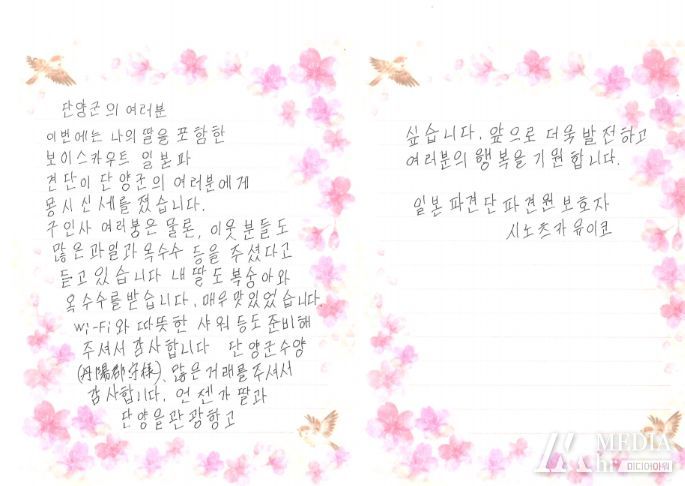 단양군의 여러분
이번에는 나의 딸을 포함한
보이스카우트 일본파
견단이 단양군의 여러분에게
몹시 신세를 졌습니다.
구인사 여러붕은 물론, 이웃 분들도
많은 과일과 옥수수 등을 주셨다고
듣고 있습니다 내 딸도 복숭아와
옥수수를 받습니다. 매우 맛있었습니다
Wi-Fi와 따뜻한 샤워 등도 준비해
주셔서 감사합니다 단양군수양
(丹陽郡守様), 많은 거래를 주셔서
감사합니다. 언젠가 딸과
단양을 관광항고
싶습니다. 앞으로 더욱 발전하고
여러분의 행복을 기원합니다.
일본 파견단 파견원 보호자
시노츠카 유이코
MEDIA
hr
미디어아워